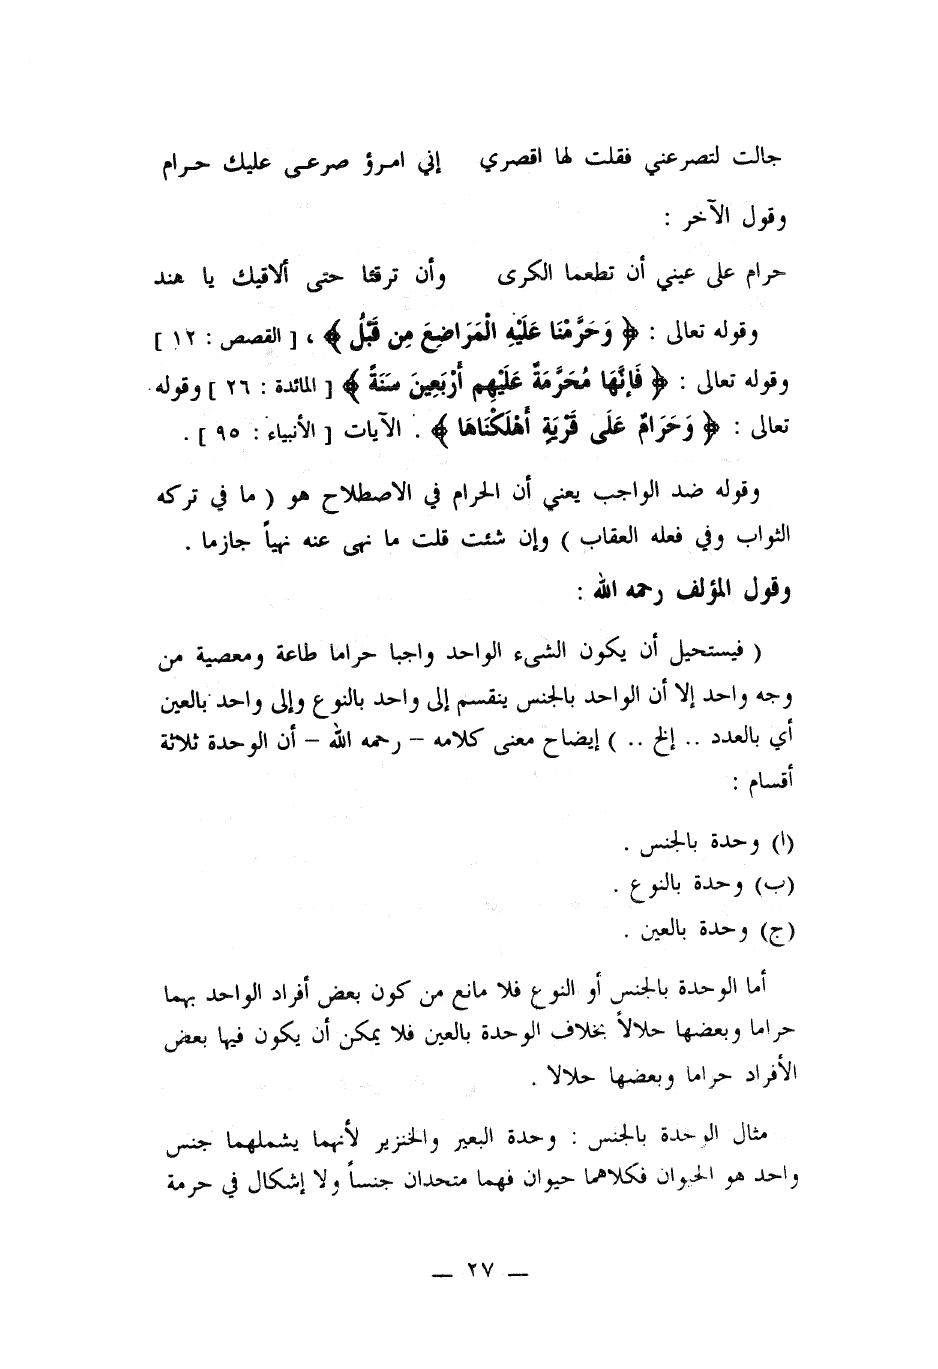 جالت لتصرعني فقلت لها اقصري إني امرؤ صرعى عليك حرام
وقول الآخر :
حرام على عيني أن تطعما الكرى وأن ترقئا حتى ألاقيك يا هند
وقوله تعالى : ﴿ وَحَرَّمْنَا عَلَيْهِ الْمَرَاضِعَ مِن قَبْلُ ﴾ ، [ القصص : ١٢ ]
وقوله تعالى : ﴿ فَإِنَّهَا مُحَرَّمَةٌ عَلَيْهِم أَرْبَعِينَ سَنَةً ﴾ [ المائدة : ٢٦ ] وقوله
تعالى : ﴿ وَحَرَامٌ عَلَى قَرْيَةٍ أَهْلَكْنَاهَا ﴾ . الآيات [ الأنبياء : ٩٥ ] .
وقوله ضد الواجب يعني أن الحرام في الاصطلاح هو ( ما في تركه
الثواب وفي فعله العقاب ) وإن شئت قلت ما نهى عنه نهياً جازما .
وقول المؤلف رحمه الله :
( فيستحيل أن يكون الشىء الواحد واجبا حراما طاعة ومعصية من
وجه واحد إلا أن الواحد بالجنس ينقسم إلى واحد بالنوع وإلى واحد بالعين
أي بالعدد .. إلخ .. ) إيضاح معنى كلامه – رحمه الله – أن الوحدة ثلاثة
أقسام :
(ا) وحدة بالجنس .
(ب) وحدة بالنوع .
(ج) وحدة بالعين .
أما الوحدة بالجنس أو النوع فلا مانع من كون بعض أفراد الواحد بهما
حراما وبعضها حلالاً بخلاف الوحدة بالعين فلا يمكن أن يكون فيها بعض
الأفراد حراما وبعضها حلالا .
مثال الوحدة بالجنس : وحدة البعير والخنزير لأنهما يشملهما جنس
واحد هو الحيوان فكلاهما حيوان فهما متحدان جنساً ولا إشكال في حرمة
— ٢٧ —